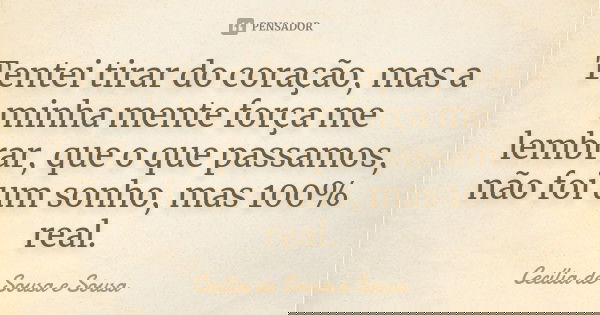 PENSADOR
Tentei tirar do coração, mas a
minha mente força me
lembrar, que o que passamos,
não foi um sonho, mas 100%
real.
Cecília de Sousa e Sousa